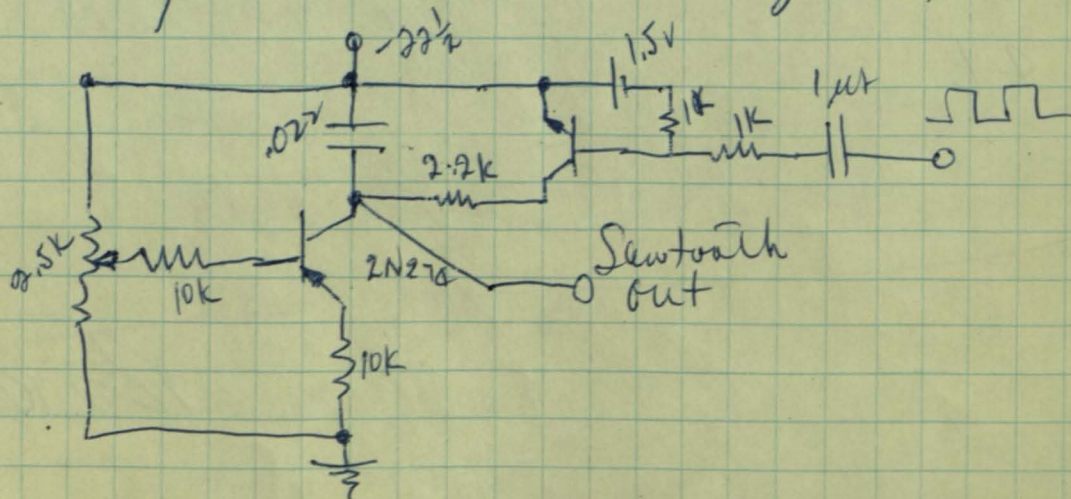 -22½
1.5v
1K
1K
.022
2.2K
2.5K
10K
2N274
Sawtooth
out
10K